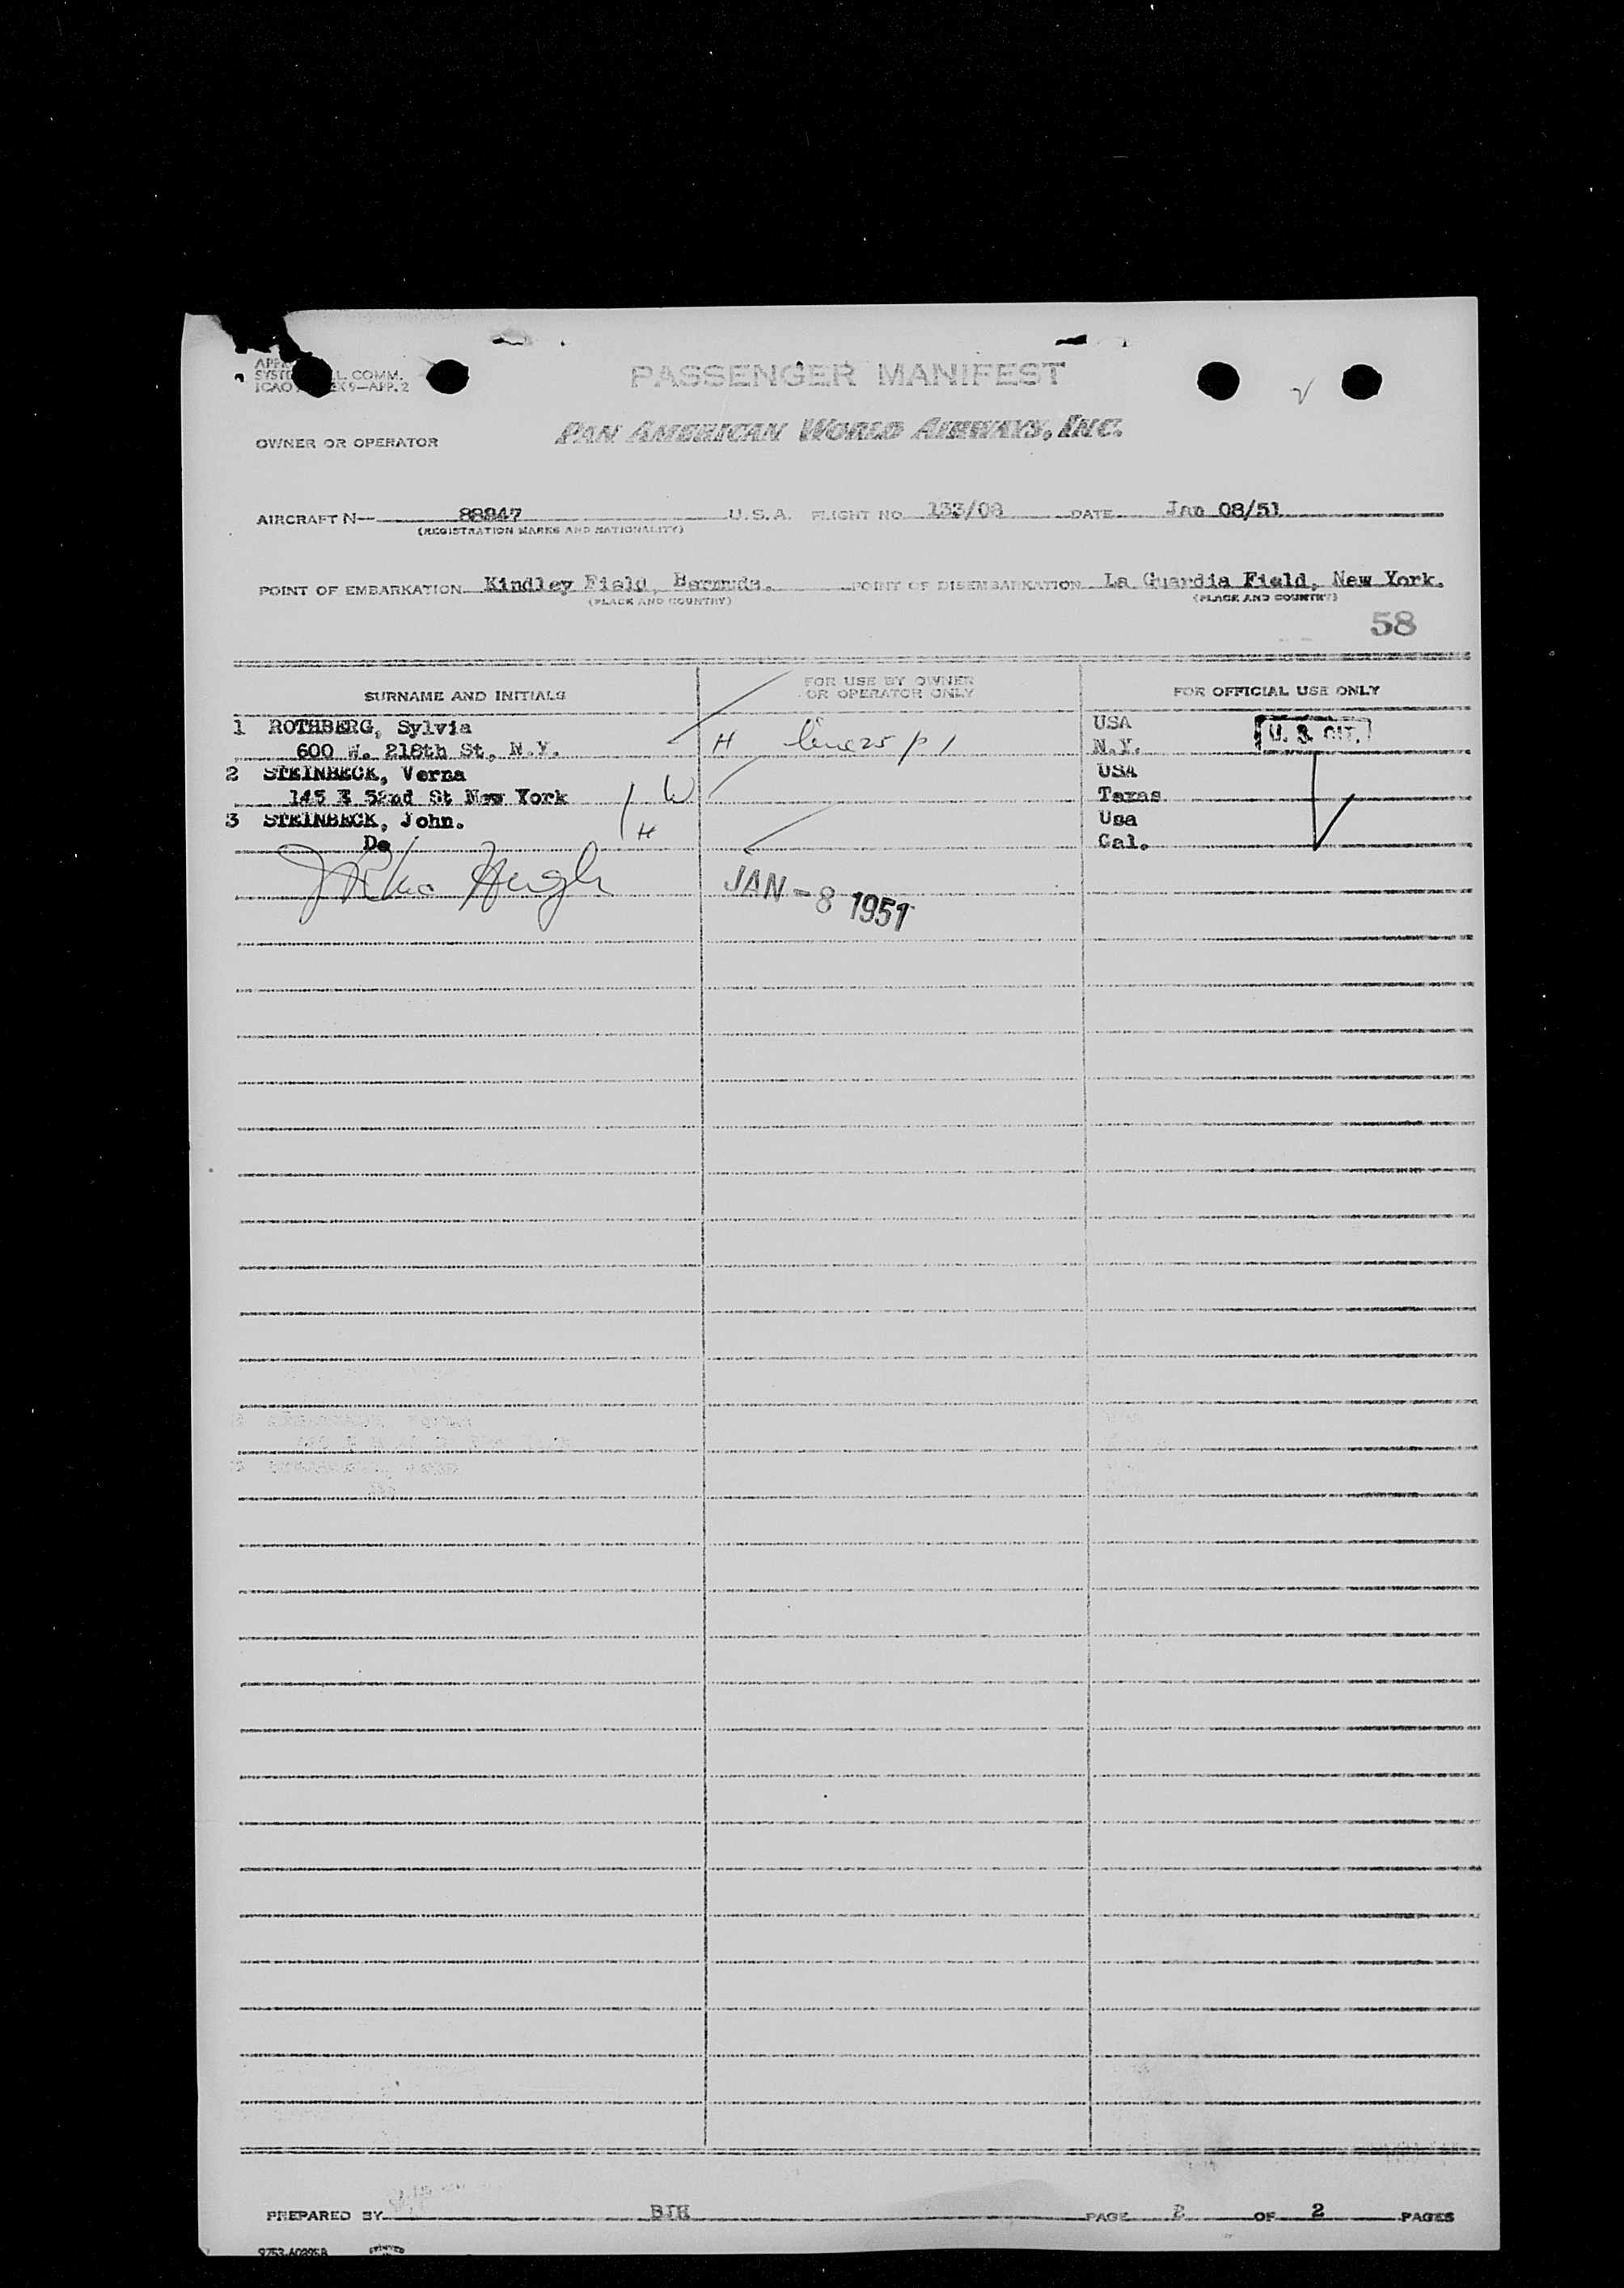 L. COMM.
ICAO EX 9—APP. 2
PASSENGER MANIFEST
OWNER OR OPERATOR PAN AMERICAN WORLD AIRWAYS, INC.
AIRCRAFT N— 88947 U.S.A. FLIGHT NO. 133/08 DATE Jan 08/51
(REGISTRATION MARKS AND NATIONALITY)
POINT OF EMBARKATION Kindley Field, Bermuda. POINT OF DISEMBARKATION La Guardia Field, New York.
(PLACE AND COUNTRY) (PLACE AND COUNTRY)
58
SURNAME AND INITIALS FOR USE BY OWNER OR OPERATOR ONLY FOR OFFICIAL USE ONLY
1 ROTHBERG, Sylvia USA U. S. CIT.
600 W. 218th St, N.Y. H N.Y.
2 STEINBECK, Verna USA
145 E 52nd St New York W Texas
3 STEINBECK, John. Usa
Do H Cal.
JAN - 8 1951
PREPARED BY BJH PAGE 2 OF 2 PAGES